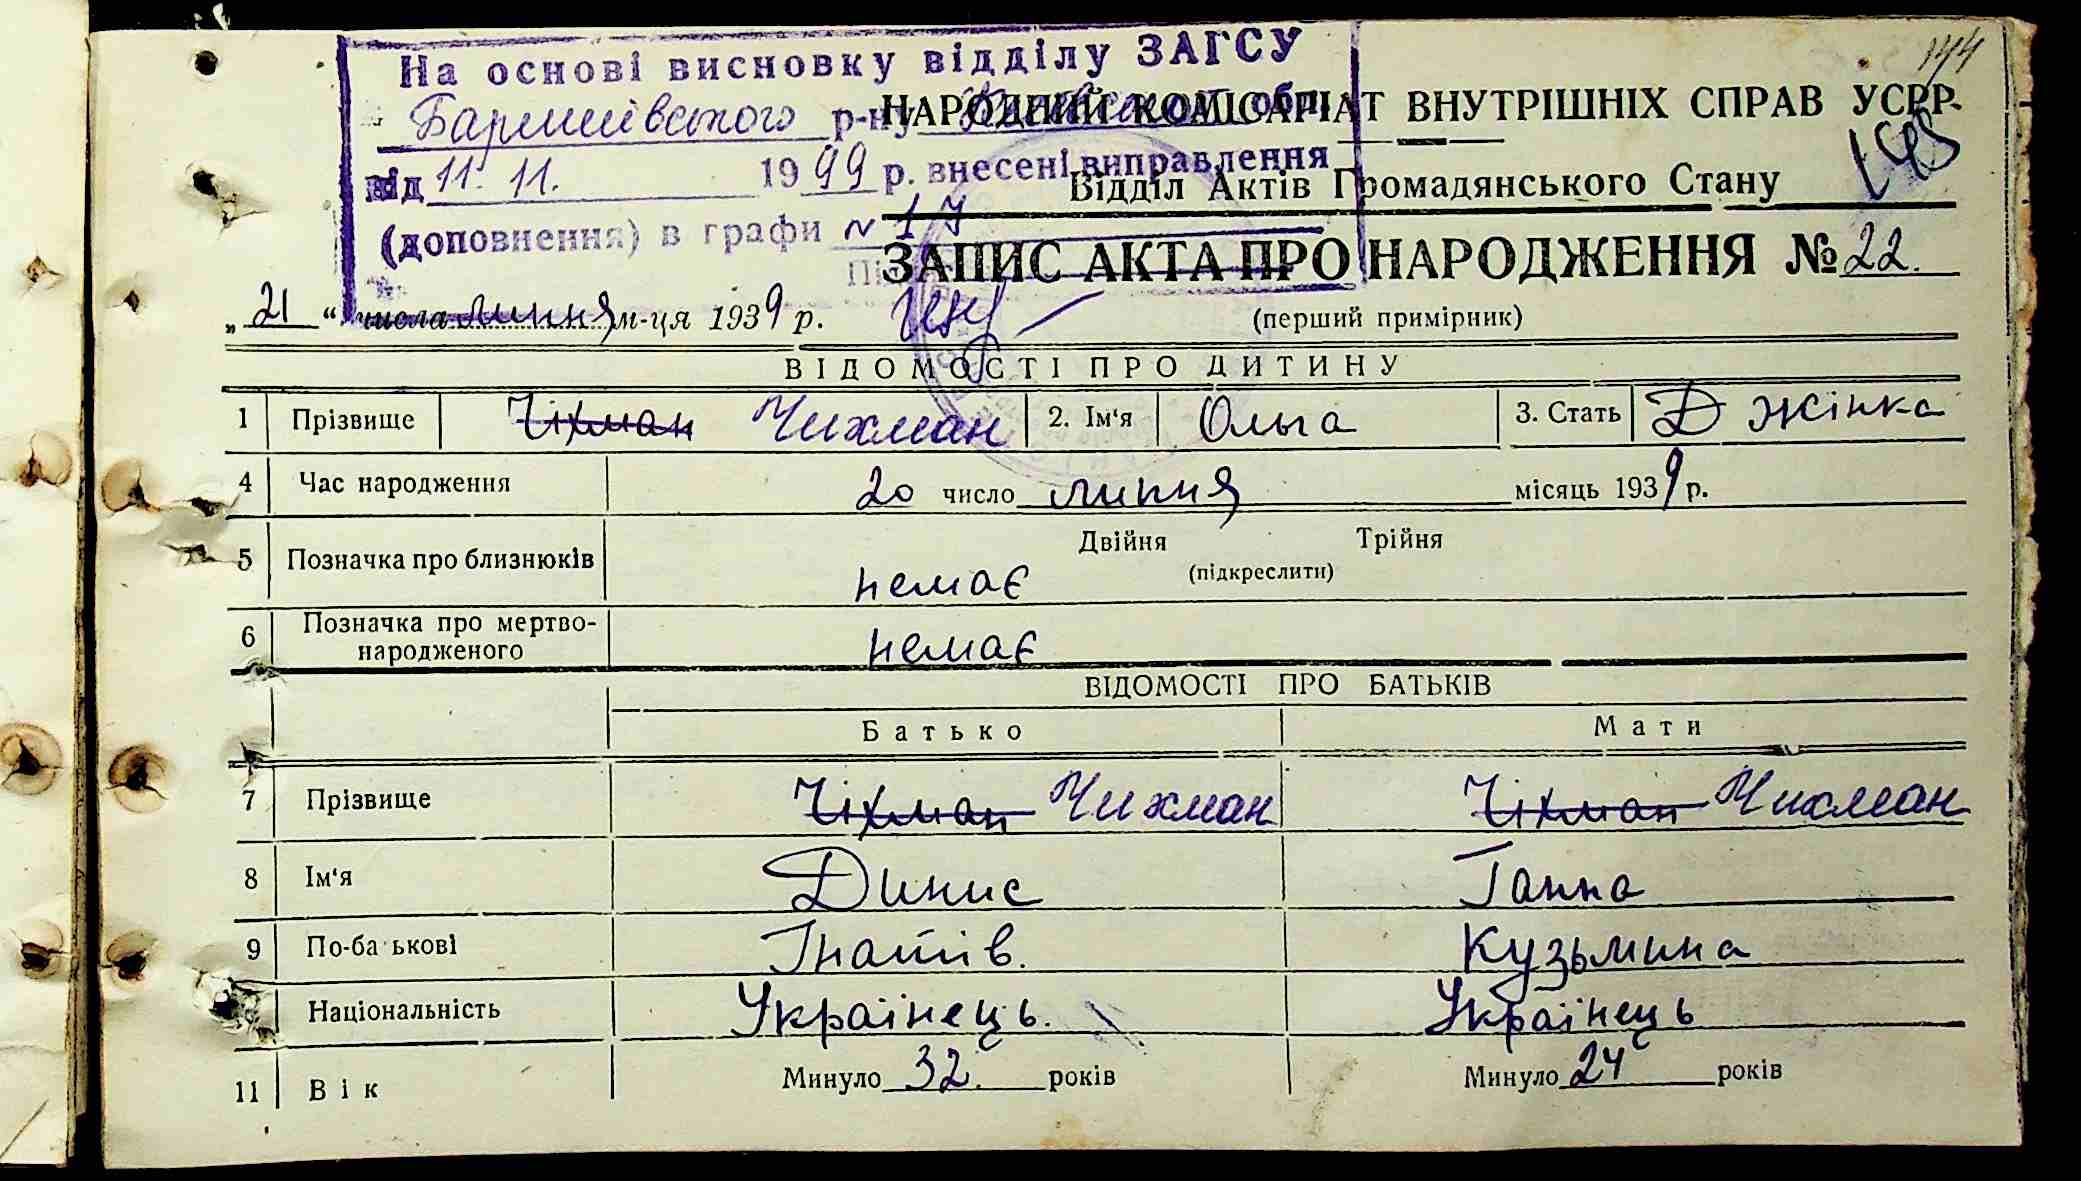 144
На основі висновку відділу ЗАГСУ
Баришівського р-ну Київської обл.
від 11. 11. 1999 р. внесені виправлення
(доповнення) в графи № 1, 7
НАРОДНИЙ КОМІСАРІАТ ВНУТРІШНІХ СПРАВ УСРР
Відділ Актів Громадянського Стану
ЗАПИС АКТА ПРО НАРОДЖЕННЯ № 22.
„21“ числа липня м-ця 1939 р.
(перший примірник)
ВІДОМОСТІ ПРО ДИТИНУ
1 Прізвище Чіхман Чихман 2. Ім‘я Ольга 3. Стать Д жінка
4 Час народження 20 число липня місяць 1939 р.
5 Позначка про близнюків немає Двійня Трійня
(підкреслити)
6 Позначка про мертво-
народженого немає
ВІДОМОСТІ ПРО БАТЬКІВ
Батько Мати
7 Прізвище Чіхман Чихман Чіхман Чихман
8 Ім‘я Динис Ганна
9 По-батькові Гнатів. Кузьмина
Національність Українець. Українець
11 Вік Минуло 32. років Минуло 24 років